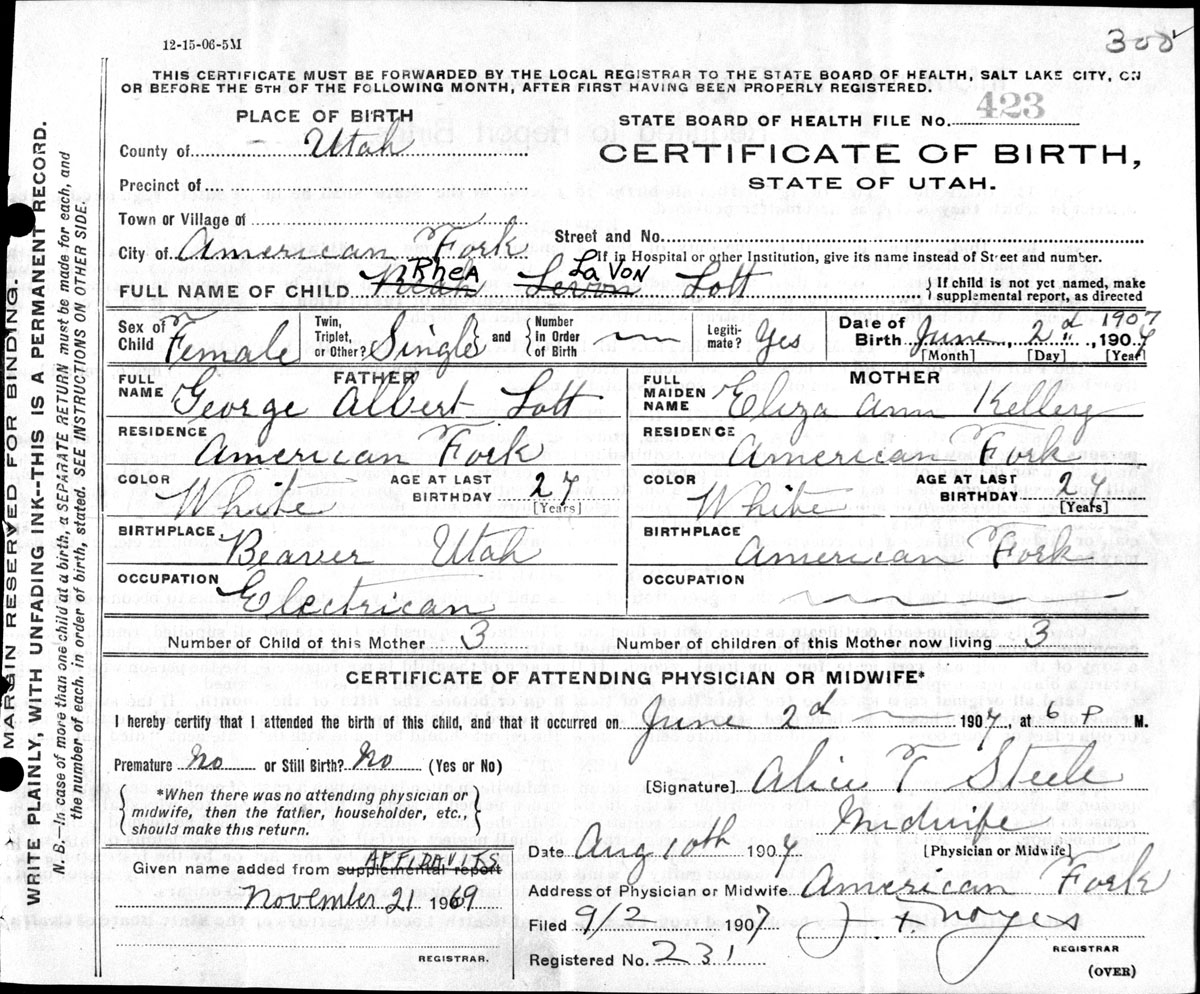 12-15-06-5M
300
THIS CERTIFICATE MUST BE FORWARDED BY THE LOCAL REGISTRAR TO THE STATE BOARD OF HEALTH, SALT LAKE CITY, ON
OR BEFORE THE 5TH OF THE FOLLOWING MONTH, AFTER FIRST HAVING BEEN PROPERLY REGISTERED.
PLACE OF BIRTH
STATE BOARD OF HEALTH FILE NO. 423
County of Utah
CERTIFICATE OF BIRTH,
STATE OF UTAH.
Precinct of
Town or Village of
City of American Fork
Street and No.
If in Hospital or other Institution, give its name instead of Street and number.
RheA LaVon
FULL NAME OF CHILD Lott
If child is not yet named, make
supplemental report, as directed
Sex of Child Female
Twin, Triplet, or Other? Single and Number In Order of Birth
Legiti-mate? Yes
Date of Birth June 2d 1907
[Month] [Day] [Year]
FATHER
FULL NAME George Albert Lott
MOTHER
FULL MAIDEN NAME Eliza Ann Kelley
RESIDENCE American Fork
RESIDENCE American Fork
COLOR White AGE AT LAST BIRTHDAY 27 [Years]
COLOR White AGE AT LAST BIRTHDAY 27 [Years]
BIRTHPLACE Beaver Utah
BIRTHPLACE American Fork
OCCUPATION Electrican
OCCUPATION
Number of Child of this Mother 3
Number of children of this Mother now living 3
CERTIFICATE OF ATTENDING PHYSICIAN OR MIDWIFE*
I hereby certify that I attended the birth of this child, and that it occurred on June 2d 1907, at 6 P M.
Premature No or Still Birth? No (Yes or No)
[Signature] Alice T Steele
*When there was no attending physician or
midwife, then the father, householder, etc.,
should make this return.
Midwife
[Physician or Midwife]
Date Aug 10th 1907
AFFIDAVITS
Given name added from supplemental report
Address of Physician or Midwife American Fork
November 21 1969
Filed 9/2 1907 J. F. Noyes
REGISTRAR
REGISTRAR.
Registered No. 231
(OVER)
MARGIN RESERVED FOR BINDING.
WRITE PLAINLY, WITH UNFADING INK--THIS IS A PERMANENT RECORD.
N. B.—In case of more than one child at a birth, a SEPARATE RETURN must be made for each, and
the number of each, in order of birth, stated. SEE INSTRUCTIONS ON OTHER SIDE.